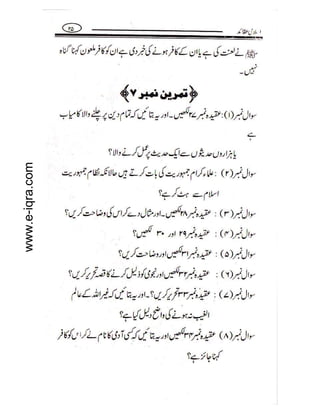 اسلامی عقائد
۲۵
ﷺ نے لعنت کی ہے یا ان کے کافر ہونے کی خبر دی ہے ان کو کافر ملعون کہنا گناہ
نہیں۔
﴿ تمرین نمبر ۷ ﴾
سوال نمبر (۱) : عقیدہ نمبر ۲۷ لکھیں۔ اور یہ بتائیں کہ تمام دین پر چلنے والا کامیاب
ہے
یا ہزاروں حدیثوں سے ایک حدیث پر عمل کرنے والا؟
سوال نمبر (۲) : علماء کرام جمہوریت کی بات کرتے ہیں حالانکہ نظام جمہوریت
اسلام سے ہٹ کر ہے؟
سوال نمبر (۳) : عقیدہ نمبر ۲۸ لکھیں۔ اور مثال دے کر اس کی وضاحت کریں؟
سوال نمبر (۴) : عقیدہ نمبر ۲۹ اور ۳۰ لکھیں؟
سوال نمبر (۵) : عقیدہ نمبر ۳۱ لکھیں اور وضاحت کریں؟
سوال نمبر (۶) : عقیدہ نمبر ۳۲ لکھیں اور نجومی کو ذلیل کرنے کا قصہ تحریر کریں؟
سوال نمبر (۷) : عقیدہ نمبر ۳۳ تحریر کریں؟۔ اور یہ بتائیں کہ غیر اللہ کے عالم
الغیب نہ ہونے کی واضح دلیل کیا ہے؟
سوال نمبر (۸) : عقیدہ نمبر ۳۴ لکھیں اور یہ بتائیں کہ کسی آدمی کا نام لے کر اس کو کافر
کہنا جائز ہے؟
www.e-iqra.com